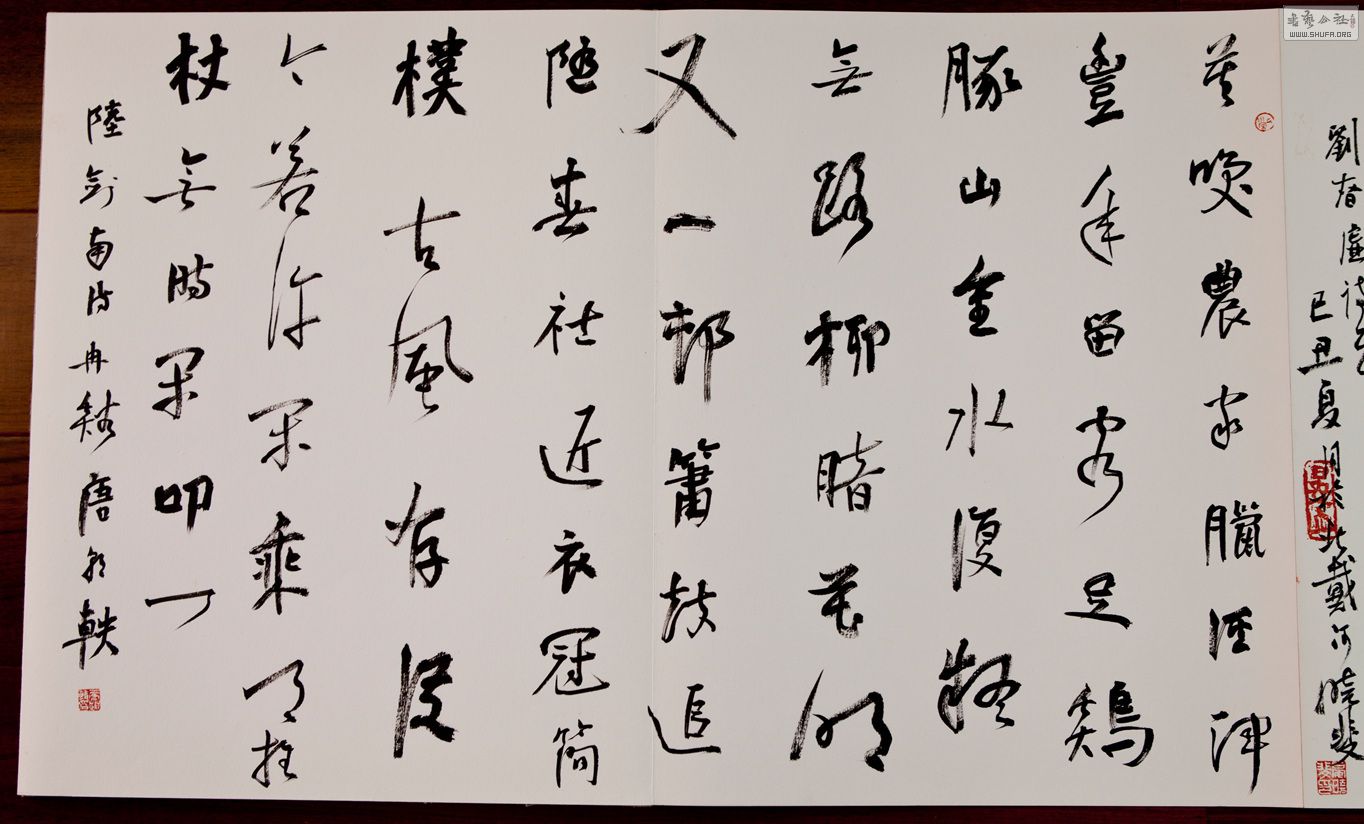 劉春
己丑夏月於北戴河曉斐
莫咲農家臘酒渾
豐年留客足鷄
豚山重水復疑
無路柳暗花明
又一邨簫鼓追
隨春社近衣冠簡
樸古風存從
今若許閑乘月拄
杖無時閑叩門
陸劍南詩冉谿唐朝軼
书艺公社
WWW.SHUFA.ORG